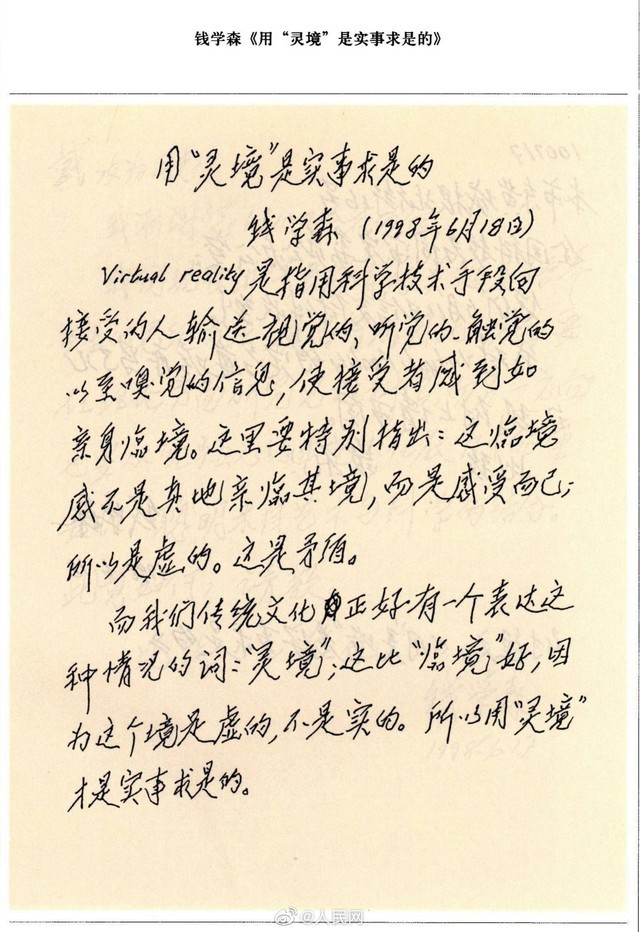 钱学森《用“灵境”是实事求是的》
用“灵境”是实事求是的
钱学森 (1998年6月18日)
Virtual reality是指用科学技术手段向
接受的人输送视觉的、听觉的、触觉的
以至嗅觉的信息,使接受者感到如
亲身临境。这里要特别指出:这临境
感不是真地亲临其境,而是感受而已;
所以是虚的。这是矛盾。
而我们传统文化正好有一个表达这
种情况的词:“灵境”;这比“临境”好,因
为这个境是虚的,不是实的。所以用“灵境”
才是实事求是的。
@人民网